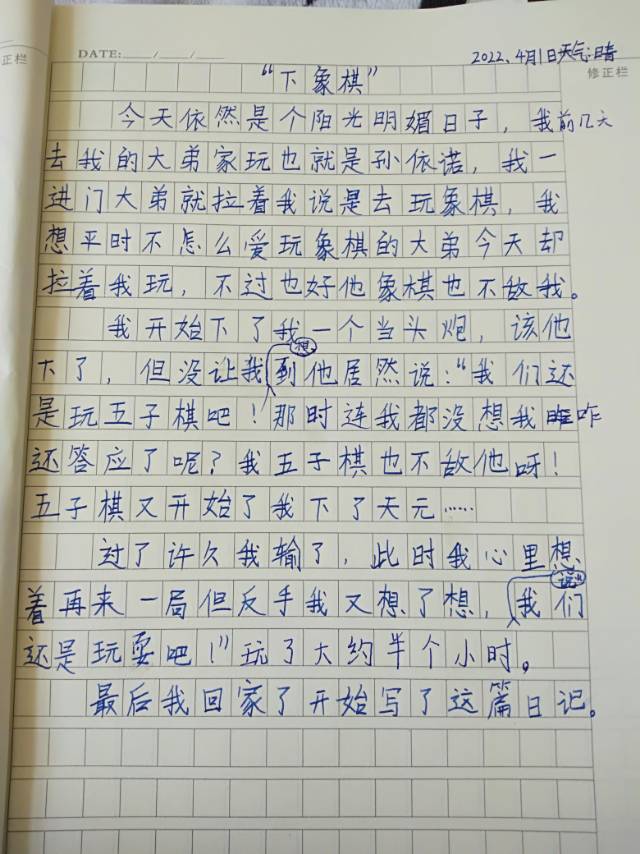 正栏
DATE: / /
2022、4月1日天气:晴
修正栏
“下象棋”
今天依然是个阳光明媚日子，我前几天
去我的大弟家玩也就是孙依诺，我一
进门大弟就拉着我说是去玩象棋，我
想平时不怎么爱玩象棋的大弟今天却
拉着我玩，不过也好他象棋也不敌我。
我开始下了我一个当头炮，该他
下了，但没让我想到他居然说：“我们还
是玩五子棋吧！那时连我都没想我咋
还答应了呢？我五子棋也不敌他呀！
五子棋又开始了我下了天元……
过了许久我输了，此时我心里想
着再来一局但反手我又想了想，说“我们
还是玩耍吧！”玩了大约半个小时。
最后我回家了开始写了这篇日记。